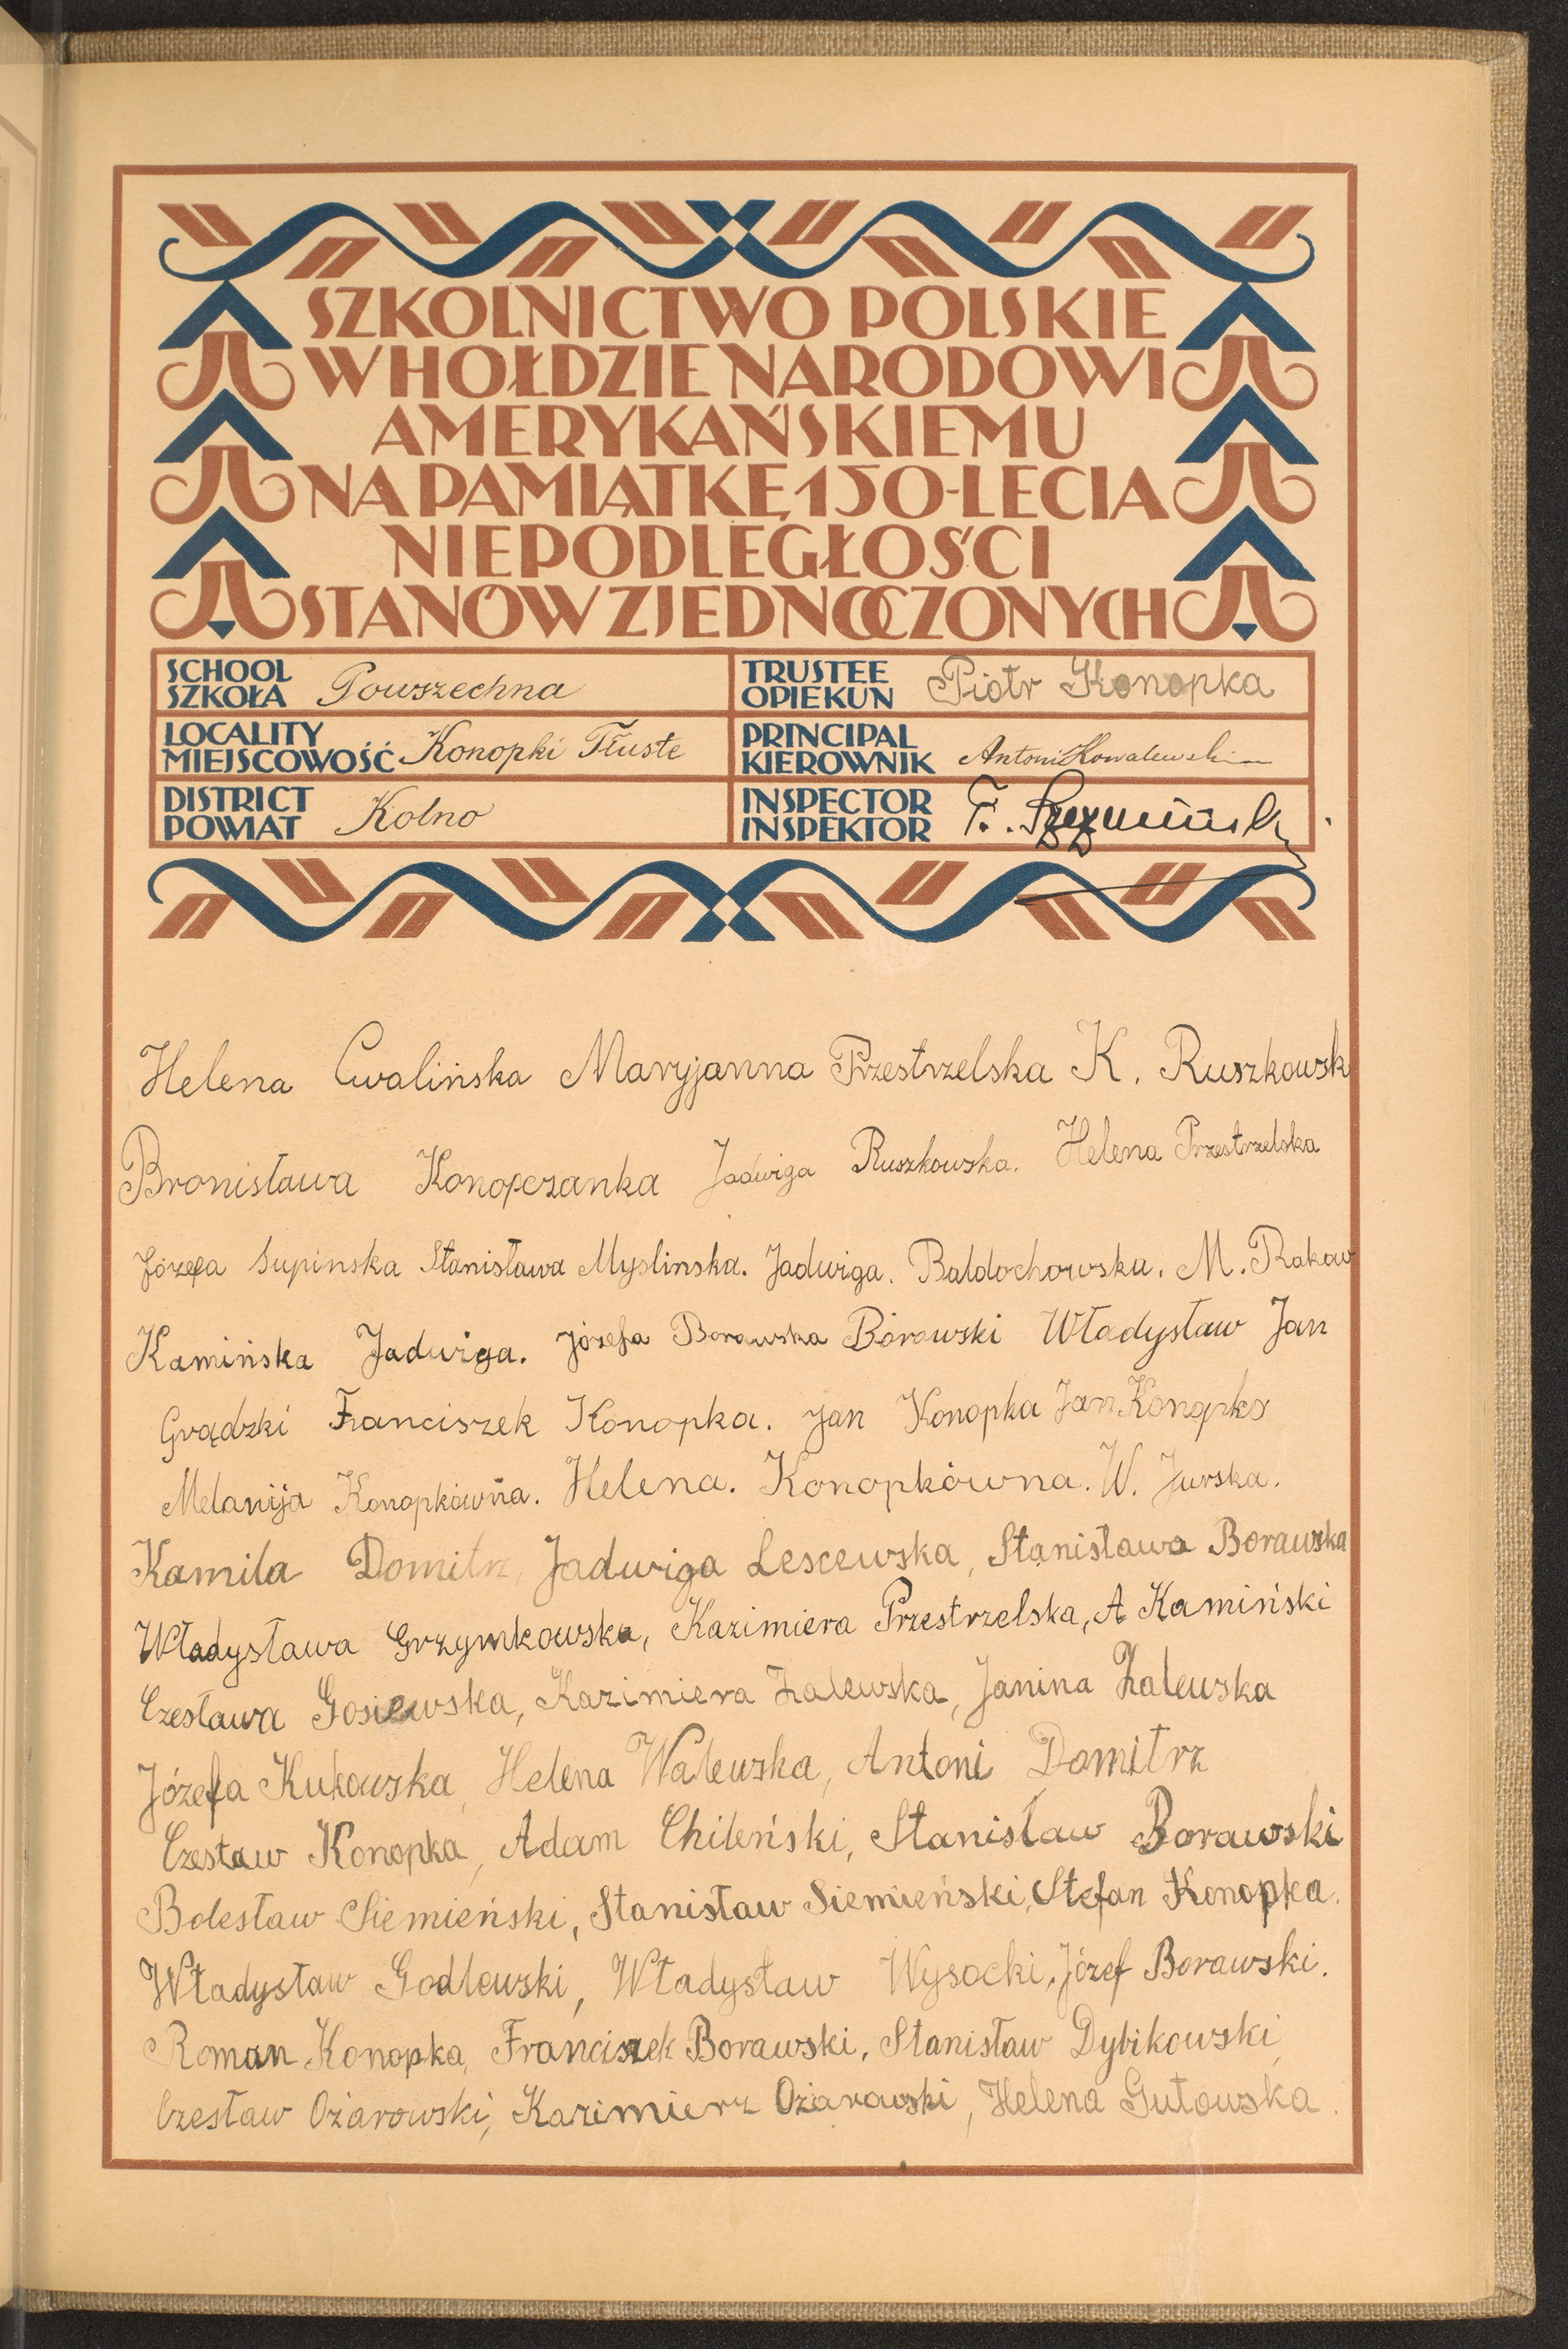 SZKOLNICTWO POLSKIE
W HOŁDZIE NARODOWI
AMERYKAŃSKIEMU
NA PAMIĄTKĘ 150-LECIA
NIEPODLEGŁOŚCI
STANÓW ZJEDNOCZONYCH
SCHOOL
SZKOŁA Powszechna
TRUSTEE
OPIEKUN Piotr Konopka
LOCALITY
MIEJSCOWOŚĆ Konopki Tłuste
PRINCIPAL
KIEROWNIK Antoni Kowalewski
DISTRICT
POWIAT Kolno
INSPECTOR
INSPEKTOR F.
Helena Cwalińska Maryjanna Przestrzelska K. Ruszkowsk
Bronisława Konopczanka Jadwiga Ruszkowska. Helena Przestrzelska
Józefa Supinska Stanisława Myslinska. Jadwiga. Baldochowska. M. Rakow
Kamińska Jadwiga. Józefa Borawska Borowski Władysław Jan
Grądzki Franciszek Konopka. Jan Konopka Jan Konopka
Melanija Konopkówna. Helena. Konopkówna. W. Jurska.
Kamila Domitrz, Jadwiga Lescewska, Stanisława Borawska
Władysława Grzymkowska, Kazimiera Przestrzelska, A Kamiński
Czesława Gosiewska, Kazimiera Zalewska, Janina Zalewska
Józefa Kukowska, Helena Walewska, Antoni Domitrz
Czesław Konopka, Adam Chileński, Stanisław Borawski
Bolesław Siemieński, Stanisław Siemieński, Stefan Konopka.
Władysław Godlewski, Władysław Wysocki, Józef Borawski.
Roman Konopka, Franciszek Borawski, Stanisław Dybikowski,
Czesław Ożarowski, Kazimierz Ożarowski, Helena Gutowska.